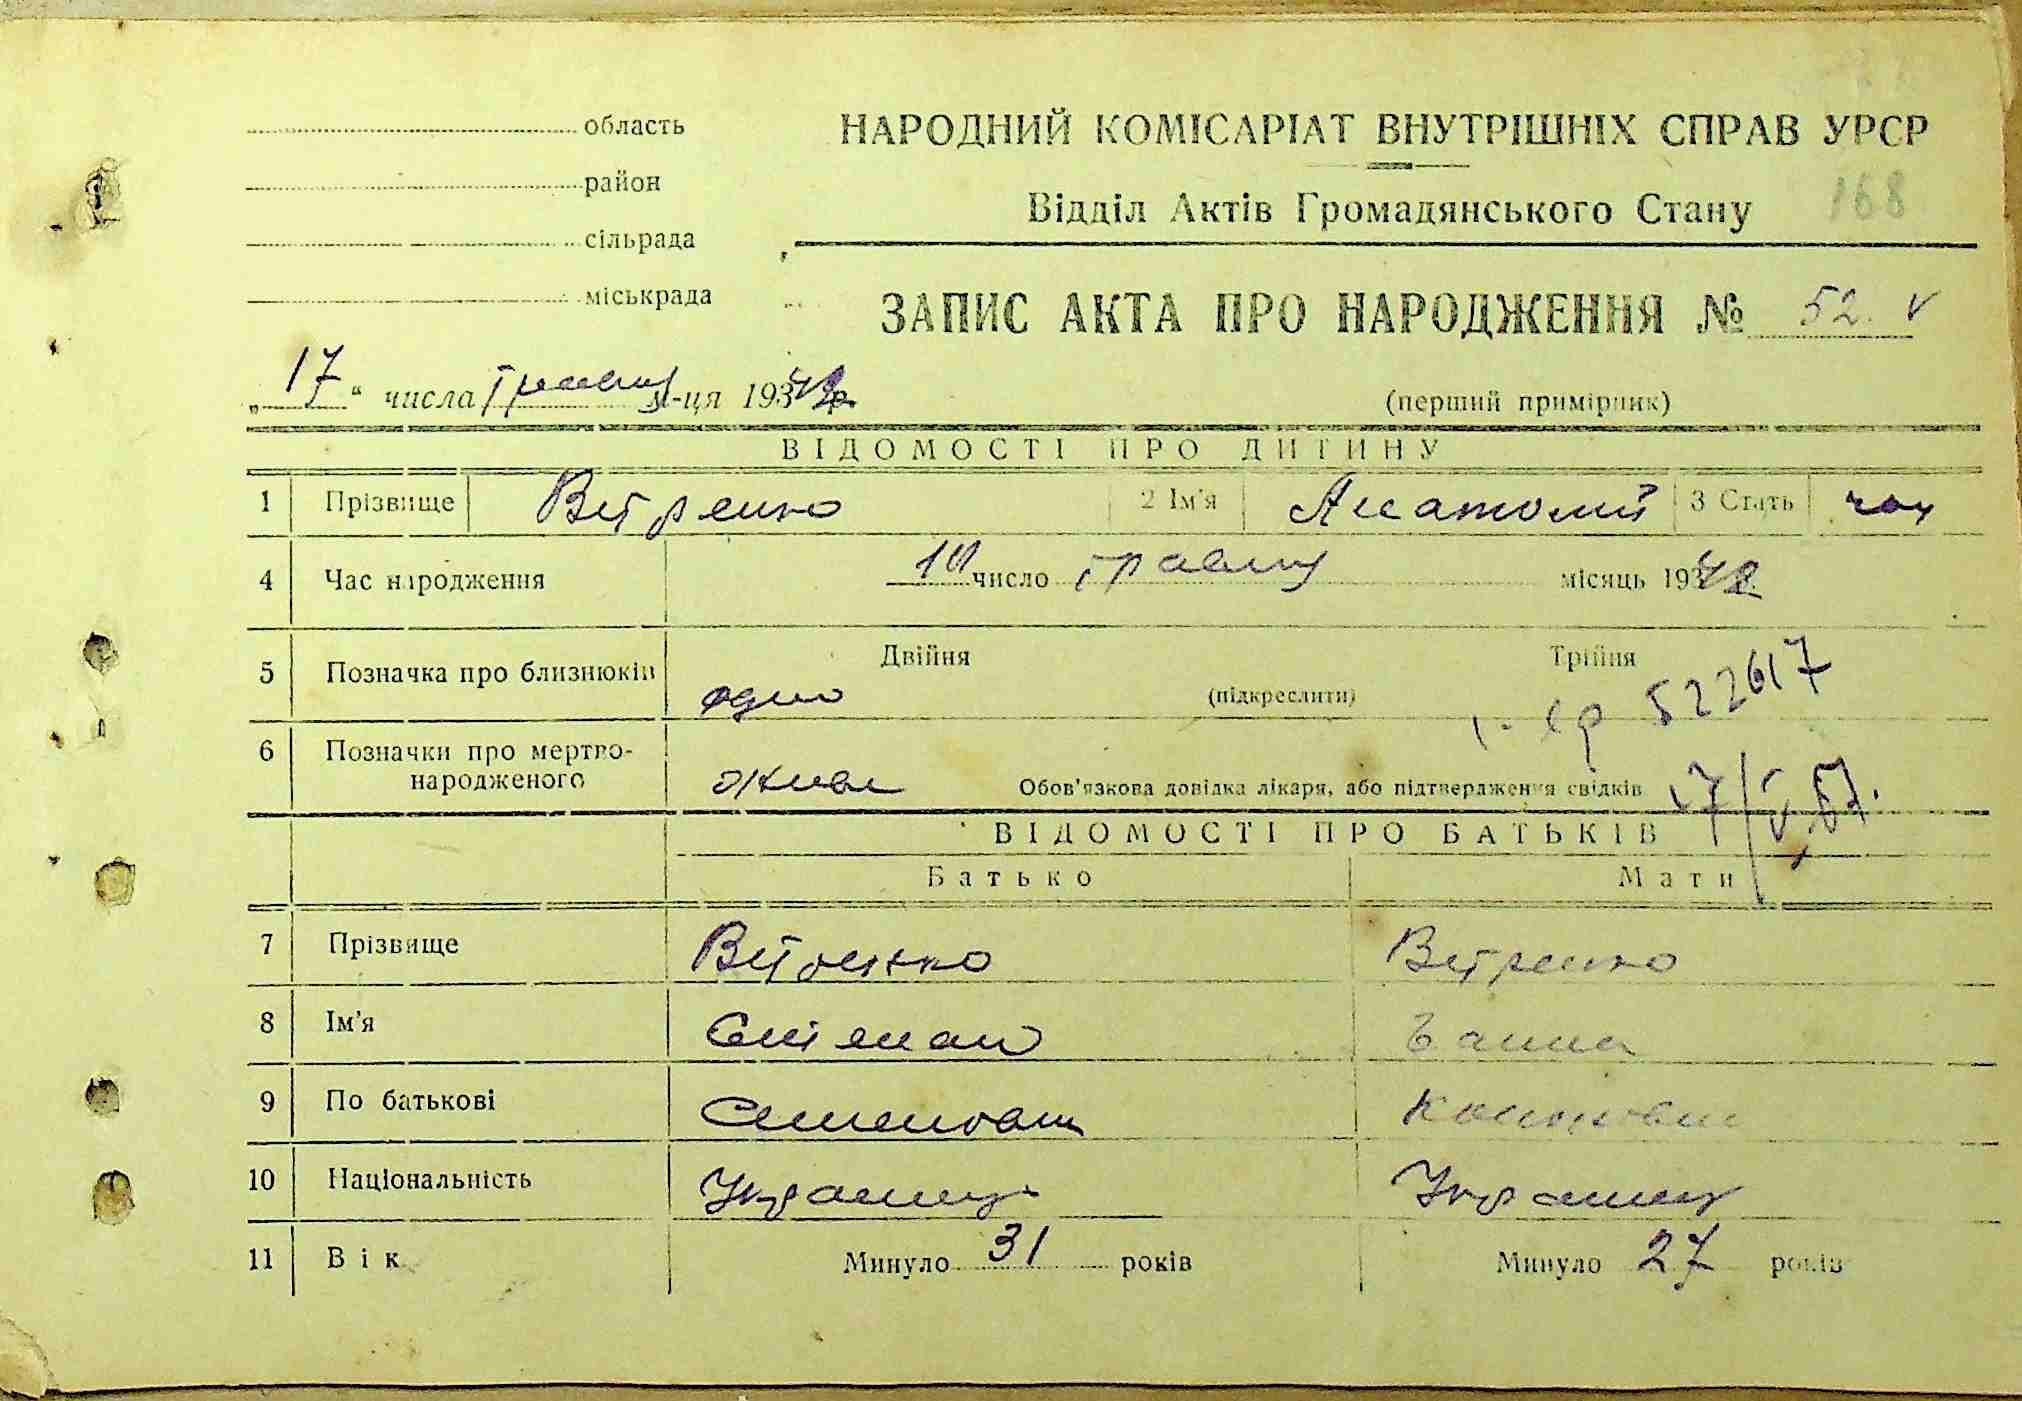 область
НАРОДНИЙ КОМІСАРІАТ ВНУТРІШНІХ СПРАВ УРСР
район
Відділ Актів Громадянського Стану 168
сільрада
міськрада
ЗАПИС АКТА ПРО НАРОДЖЕННЯ № 52. v
„17“ числа травня м-ця 193
(перший примірник)
ВІДОМОСТІ ПРО ДИТИНУ
1 Прізвище Вітренко 2 Ім'я Анатолий 3 Стать чол
4 Час народження число травня місяць 193
5 Позначка про близнюків Двійня Трійня
одно (підкреслити) 522617
6 Позначки про мертво-
народженого живе Обов'язкова довідка лікаря, або підтвердження свідків 17/V.57.
ВІДОМОСТІ ПРО БАТЬКІВ
Батько Мати
7 Прізвище Вітренко Вітренко
8 Ім'я Степан Ганна
9 По батькові Семенович
10 Національність Українц. Українц
11 Вік Минуло 31 років Минуло 27 років